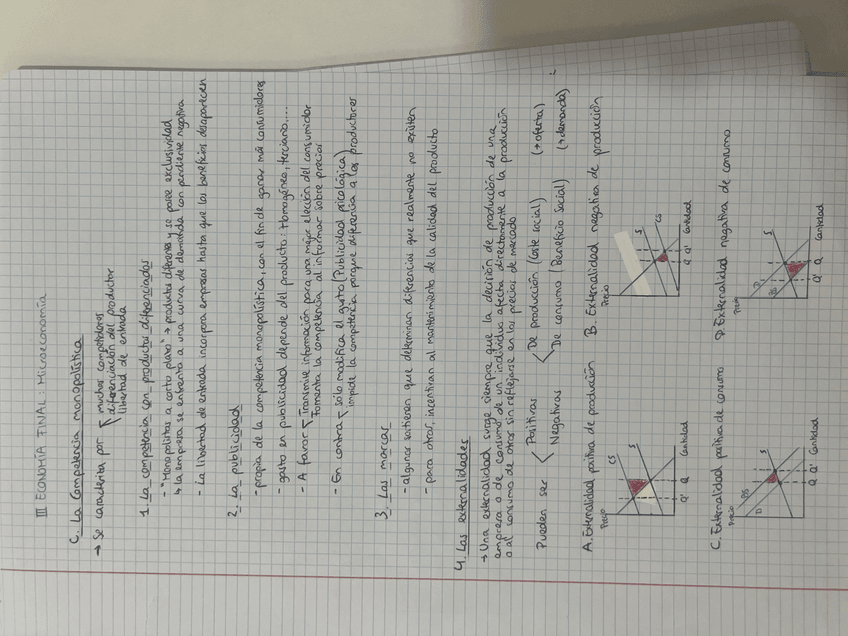 III ECONOMÍA FINAL: Microeconomía
C. La Competencia monopolística
→ Se caracteriza por muchos competidores
diferenciación del productor
libertad de entrada
1. La competencia con productos diferenciados
- "Monopolistas a corto plazo" → producto diferente y se posee exclusividad
↳ la empresa se enfrenta a una curva de demanda con pendiente negativa
- La libertad de entrada incorpora empresas hasta que los beneficios desaparecen
2. La publicidad
- propia de la competencia monopolística, con el fin de ganar más consumidores
- gasto en publicidad depende del producto: Homogéneo, terciario....
- A favor Transmite información para una mejor elección del consumidor
Fomenta la competencia al informar sobre precios
- En contra sólo modifica el gusto (Publicidad psicológica)
impide la competencia porque diferencia a los productores
3. Las marcas
- algunos sostienen que determinan diferencias que realmente no existen
- para otros, incentivan al mantenimiento de la calidad del producto
4. Las externalidades
→ Una externalidad surge siempre que la decisión de producción de una
empresa o de consumo de un individuo afecta directamente a la producción
o al consumo de otros sin reflejarse en los precios de mercado
Pueden ser Positivas De producción (coste social) (→oferta)
Negativas De consumo (Beneficio social) (→demanda)
A. Externalidad positiva de producción B. Externalidad negativa de producción
Precio CS S Q' Q Cantidad
S CS Q Q' Cantidad
C. Externalidad positiva de consumo D. Externalidad negativa de consumo
Precio D S Q Q' Cantidad
Precio D S Q' Q Cantidad